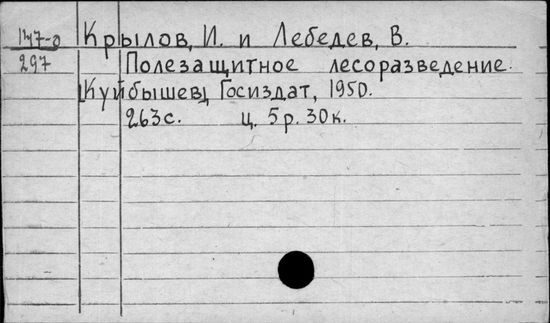 Крылов, И. и Лебедев, В.
297 Полезащитное лесоразведение.
[Куйбышев] Госиздат, 1950.
263с. ц. 5р. 30к.